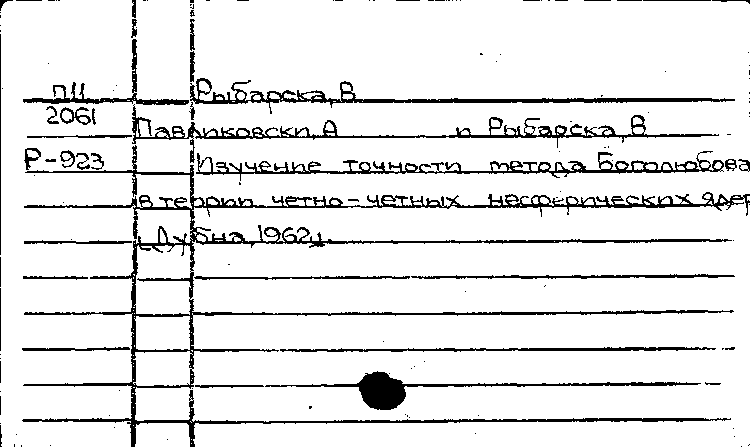 П11 Рыбарска, В
2061
Павликовски, А и Рыбарска, В
Р-923 Изучение точности метода Боголюбова
в теории четно-четных несферических ядер
Дубна, 1962г.